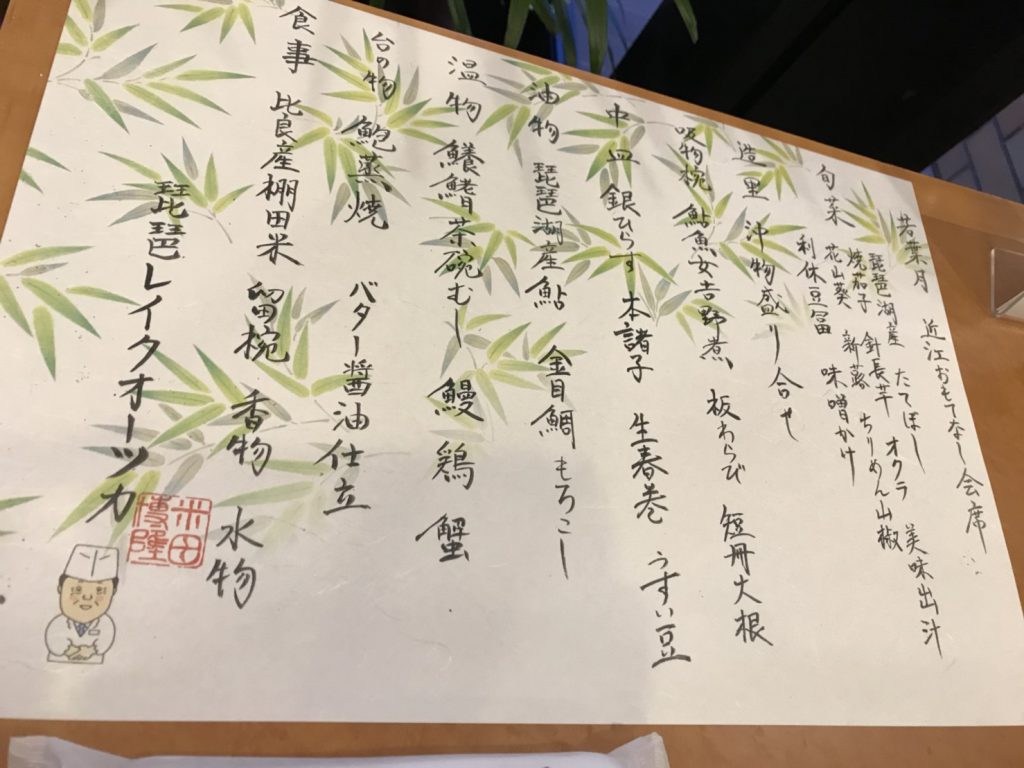 若葉月 近江おもてなし会席
琵琶湖産 たてぼし 美味出汁
焼茄子 針長芋 オクラ
旬菜 花山葵 新蕗 ちりめん山椒
利休豆冨 味噌かけ
造里 沖物盛り合せ
吸物椀 鮎魚女吉野煮 板わらび 短冊大根
中皿 銀ひらす 本諸子 生春巻 うすい豆
油物 琵琶湖産鮎 金目鯛 もろこし
温物 鱶鰭茶碗むし 鰻 鶏 蟹
台の物 鮑蒸焼 バター醤油仕立
食事 比良産棚田米 留椀 香物 水物
琵琶レイクオーツカ
米田
博隆